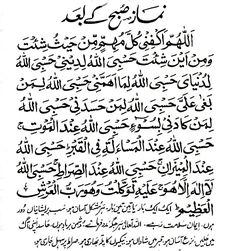 نماز صبح کے بعد
اَللّٰهُمَّ اكْفِنِيْ كُلَّ مُهِمٍّ مِّنْ حَيْثُ شِئْتَ
وَمِنْ اَيْنَ شِئْتَ حَسْبِيَ اللّٰهُ لِدِيْنِيْ حَسْبِيَ اللّٰهُ
لِدُنْيَايَ حَسْبِيَ اللّٰهُ لِمَا اَهَمَّنِيْ حَسْبِيَ اللّٰهُ لِمَنْ
بَغٰى عَلَيَّ حَسْبِيَ اللّٰهُ لِمَنْ حَسَدَنِيْ حَسْبِيَ اللّٰهُ
لِمَنْ كَادَنِيْ بِسُوْءٍ حَسْبِيَ اللّٰهُ عِنْدَ الْمَوْتِ
حَسْبِيَ اللّٰهُ عِنْدَ الْمَسْئَلَةِ فِي الْقَبْرِ حَسْبِيَ اللّٰهُ
عِنْدَ الْمِيْزَانِ حَسْبِيَ اللّٰهُ عِنْدَ الصِّرَاطِ حَسْبِيَ اللّٰهُ
لَا اِلٰهَ اِلَّا هُوَ عَلَيْهِ تَوَكَّلْتُ وَهُوَ رَبُّ الْعَرْشِ
الْعَظِيْمِ